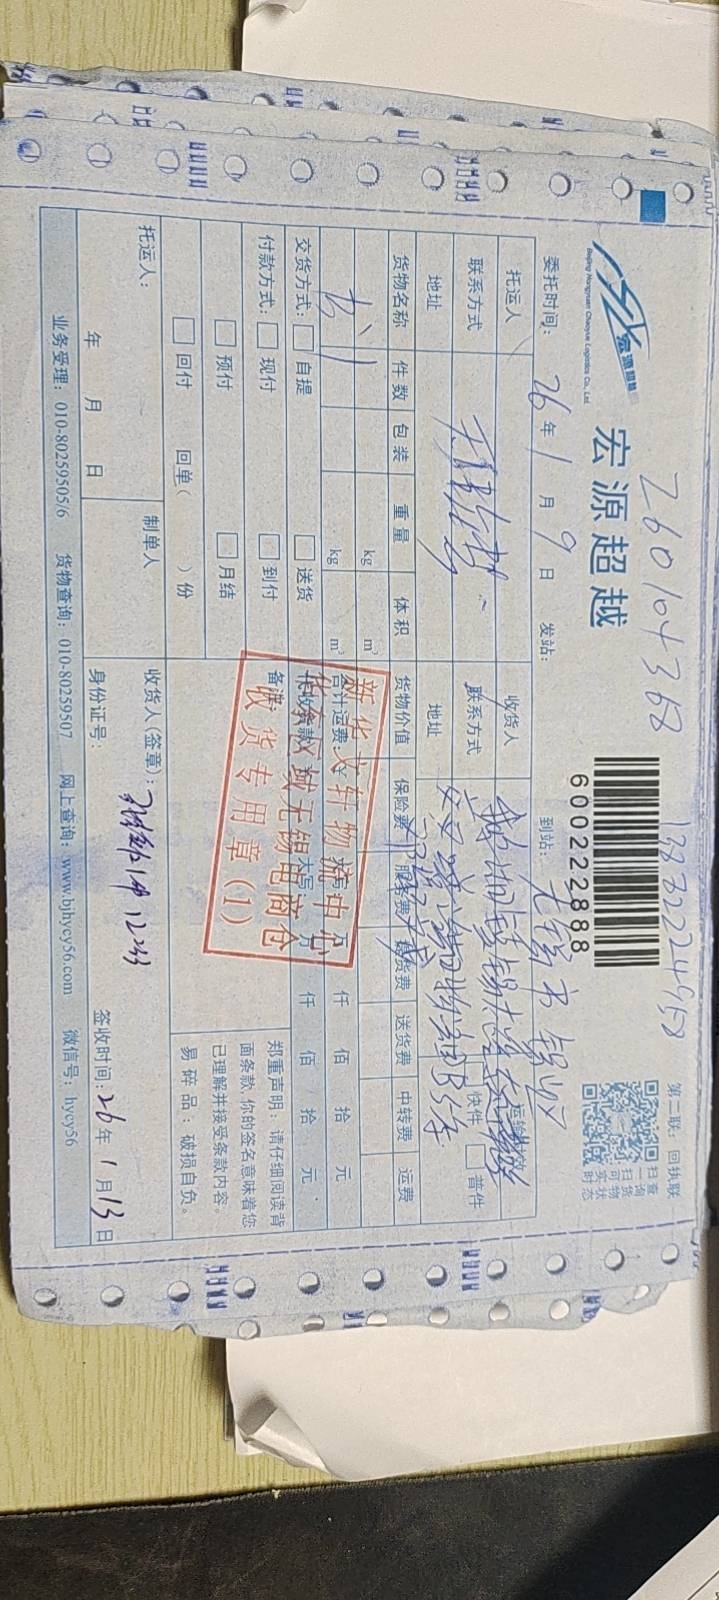 260104368
宏源超越
Beijing Hongyuan Chaoyue Logistics Co., Ltd.
宏源超越
600222888
第二联：回执联
扫一扫
查询货物实时状态
委托时间：26年1月9日 发站： 到站：无锡
托运人 收货人
联系方式 联系方式
地址 地址
快件 普件
货物名称 件数 包装 重量 体积 货物价值 保险费 服务费 提货费 送货费 中转费 运费
书 1 kg m³
kg m³
交货方式： 自提 送货
合计运费：￥ 仟 佰 拾 元
付款方式： 现付 到付
代收货款 大写 万 仟 佰 拾 元
预付 月结
备注：
回付 回单（ ）份
郑重声明：请仔细阅读背面条款，你的签名意味着您已理解并接受条款内容。
易碎品：破损自负。
新华文轩物流中心
华东区域无锡电商仓
收货专用章（1）
托运人： 制单人 收货人(签章)： 1件 1233
年 月 日 身份证号： 签收时间：26年1月13日
业务受理：010-80259505/6 货物查询：010-80259507 网上查询：www.bjhycy56.com 微信号：hycy56